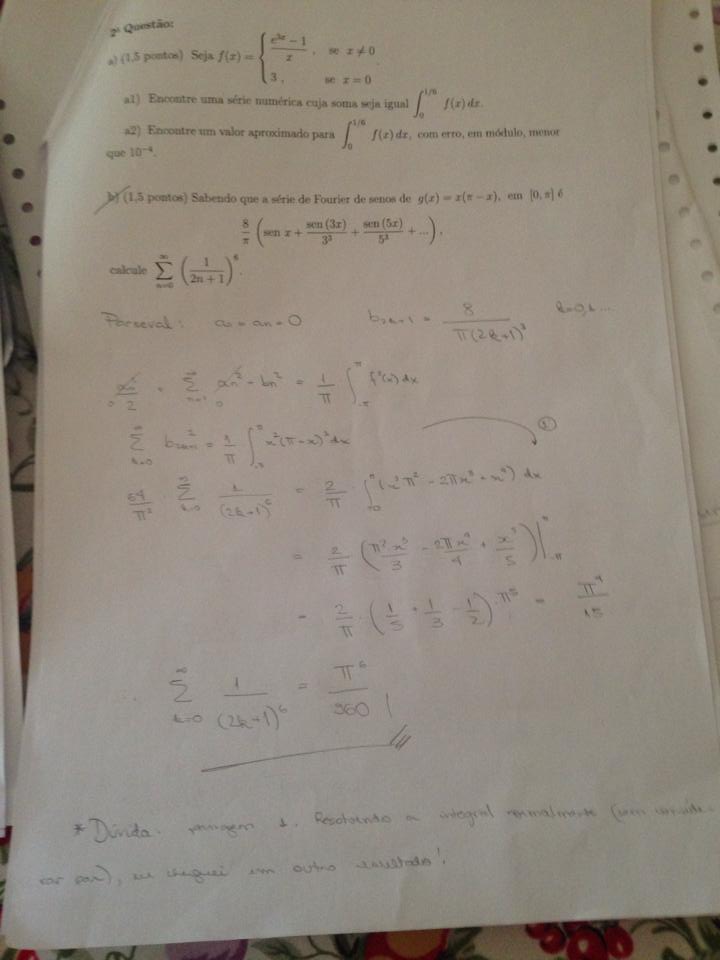 2ª Questão:
a) (1,5 pontos) Seja f(x) = { (e^{3x} − 1)/x , se x ≠ 0
3 , se x = 0
a1) Encontre uma série numérica cuja soma seja igual ∫_0^{1/6} f(x) dx.
a2) Encontre um valor aproximado para ∫_0^{1/6} f(x) dx, com erro, em módulo, menor
que 10^{−4}.
b) (1,5 pontos) Sabendo que a série de Fourier de senos de g(x) = x(π − x), em [0, π] é
8/π (sen x + sen (3x)/3³ + sen (5x)/5³ + ...),
calcule ∑_{n=0}^{∞} (1/(2n + 1))^6.
Parseval: a₀ = an = 0 b_{2k+1} = 8/(π(2k+1)³)
= 1/π ∫_{-π}^{π} f²(x) dx
∑_{k=0}^{∞} b²_{2k+1} = 1/π ∫_{-π}^{π} x²(π−x)² dx ①
64/π² ∑_{k=0}^{∞} 1/(2k+1)^6 = 2/π ∫_0^π (x²π² − 2πx³ + x⁴) dx
= 2/π (π²x³/3 − 2πx⁴/4 + x⁵/5) |
= 2/π (1/5 + 1/3 − 1/2) π⁵ = π⁴/15
∴ ∑_{k=0}^{∞} 1/(2k+1)^6 = π⁶/960
* Dúvida: passagem 1. Resolvendo a integral normalmente (sem conside-
rar par), eu cheguei em outro resultado!